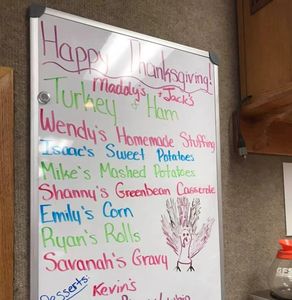 Happy Thanksgiving!
Maddy's + Jack's
Turkey + Ham
Wendy's Homemade Stuffing
Isaac's Sweet Potatoes
Mike's Mashed Potatoes
Shanny's Greenbean Casserole
Emily's Corn
Ryan's Rolls
Savanah's Gravy
Desserts:
Kevin's